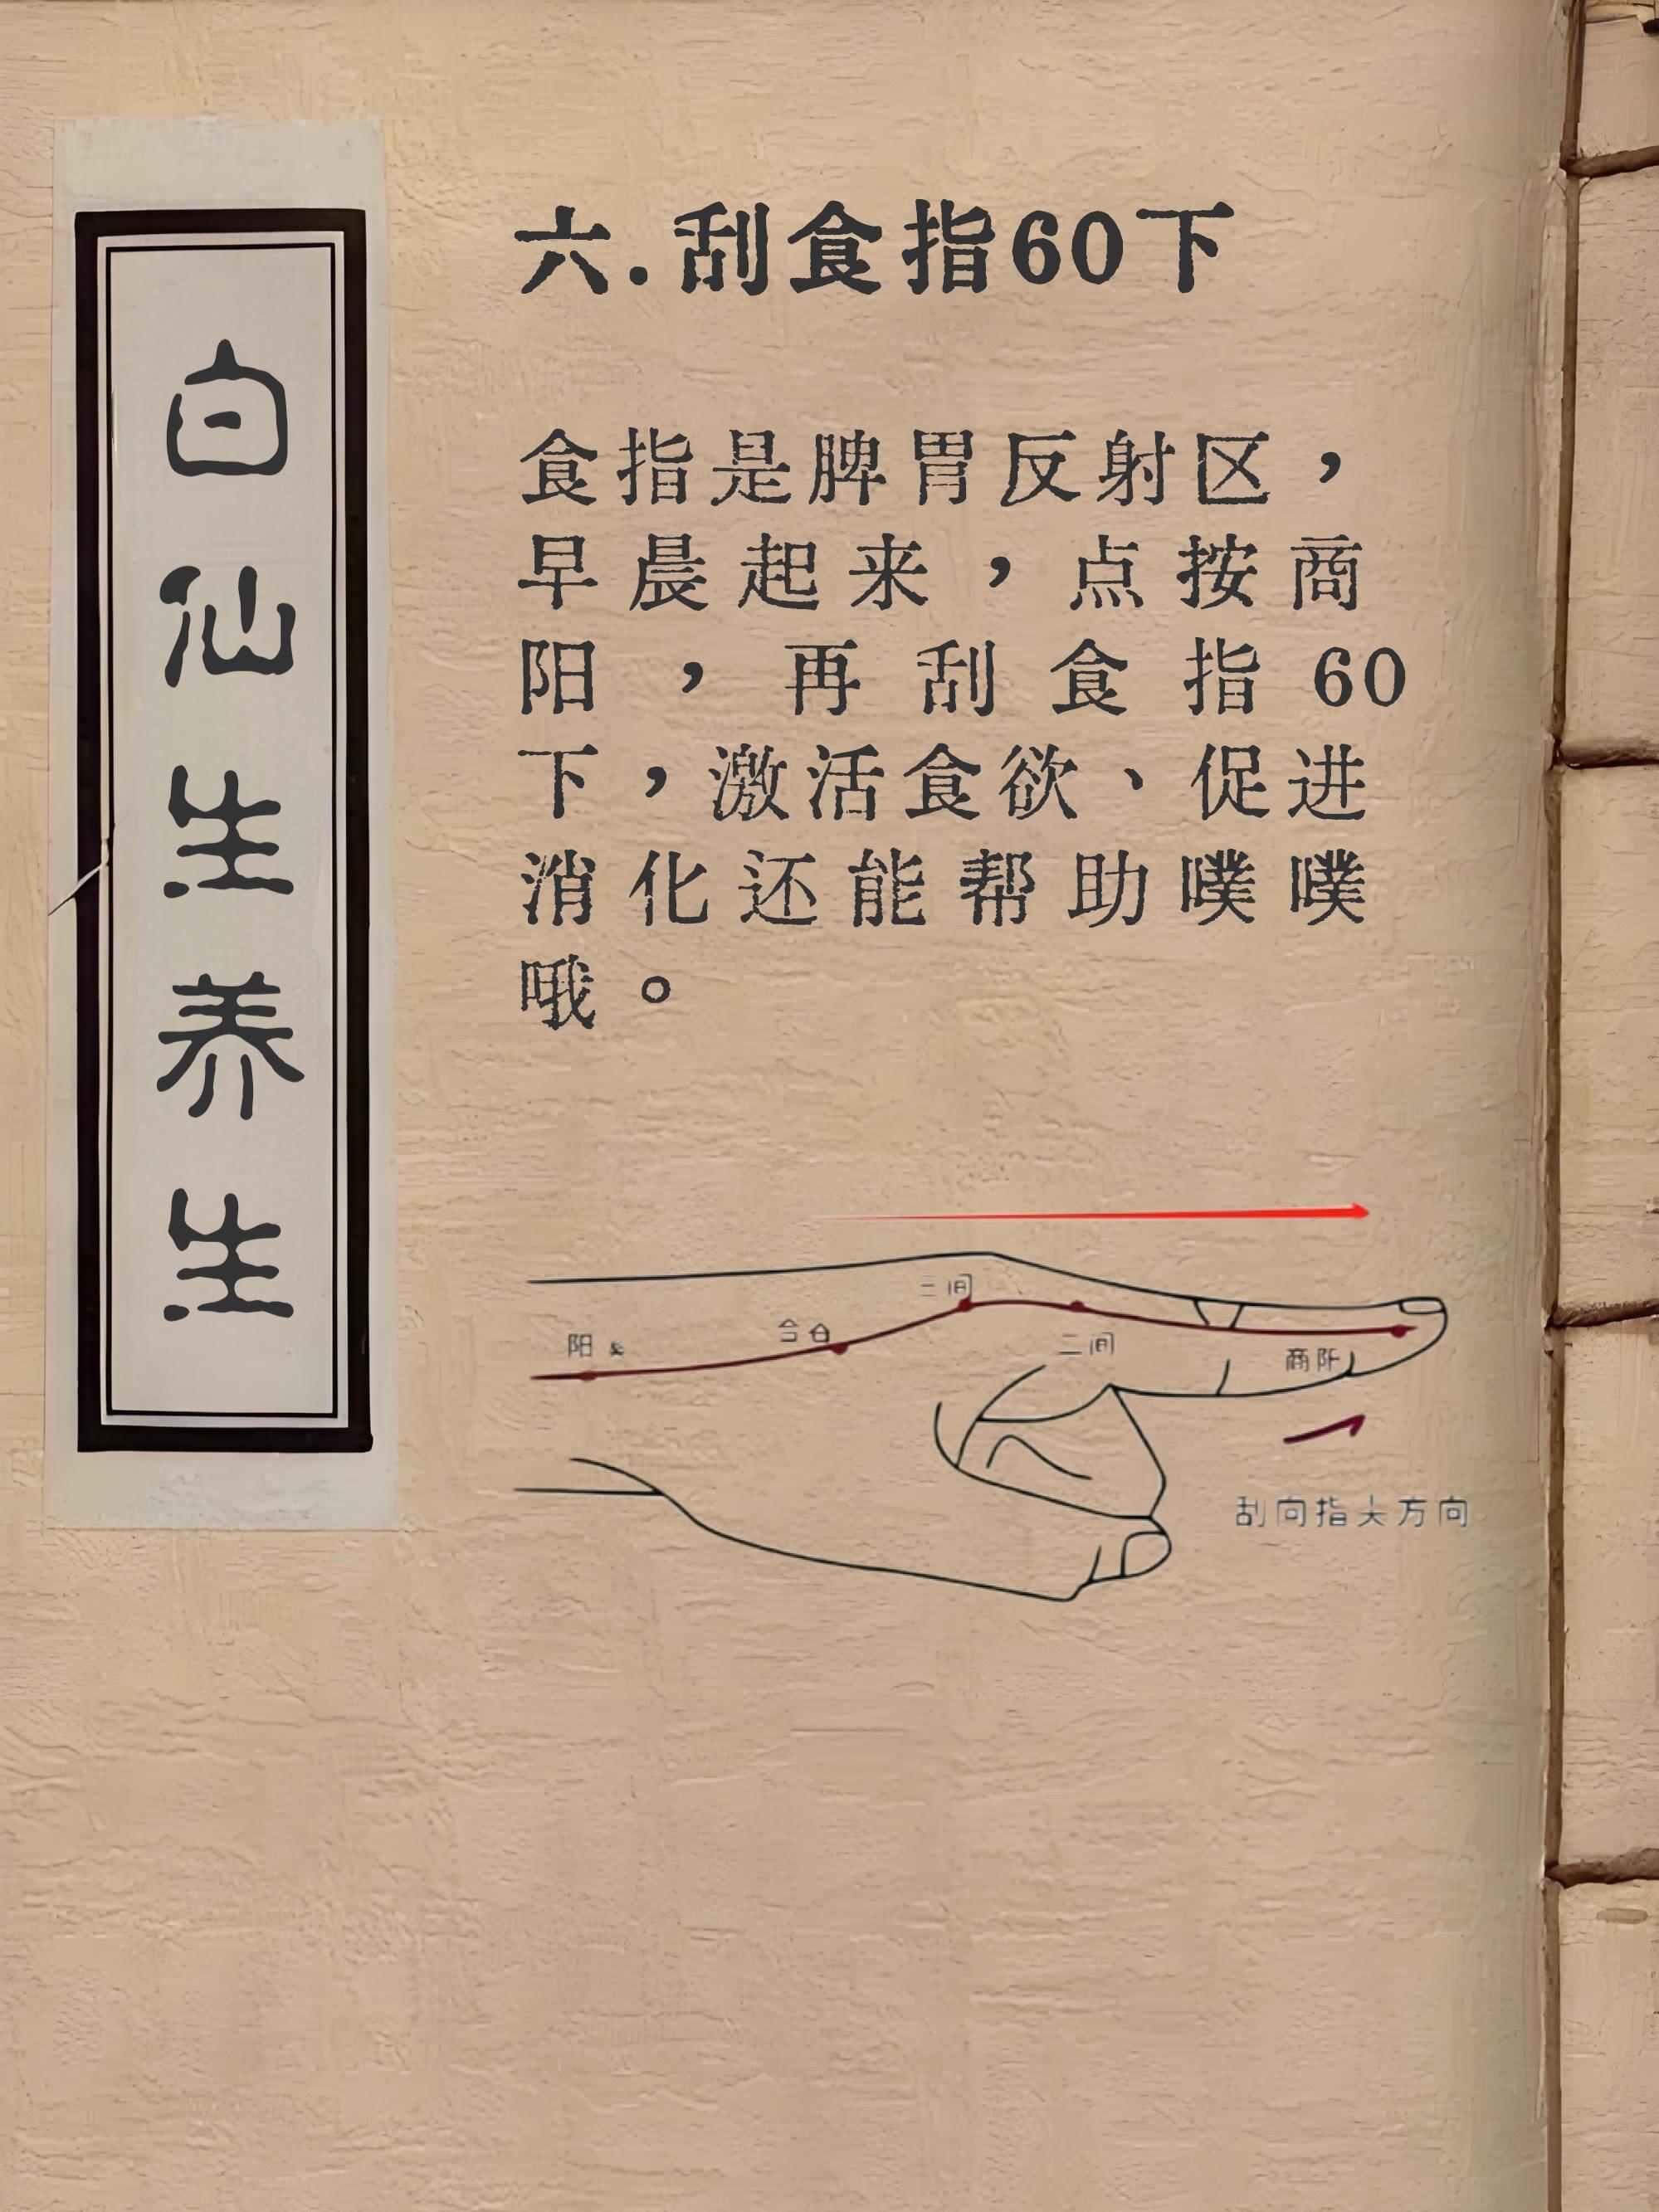 白仙生养生
六.刮食指60下
食指是脾胃反射区，
早晨起来，点按商
阳，再刮食指60
下，激活食欲、促进
消化还能帮助噗噗
哦。
三间
合谷
阳
二间
商阳
刮向指尖方向